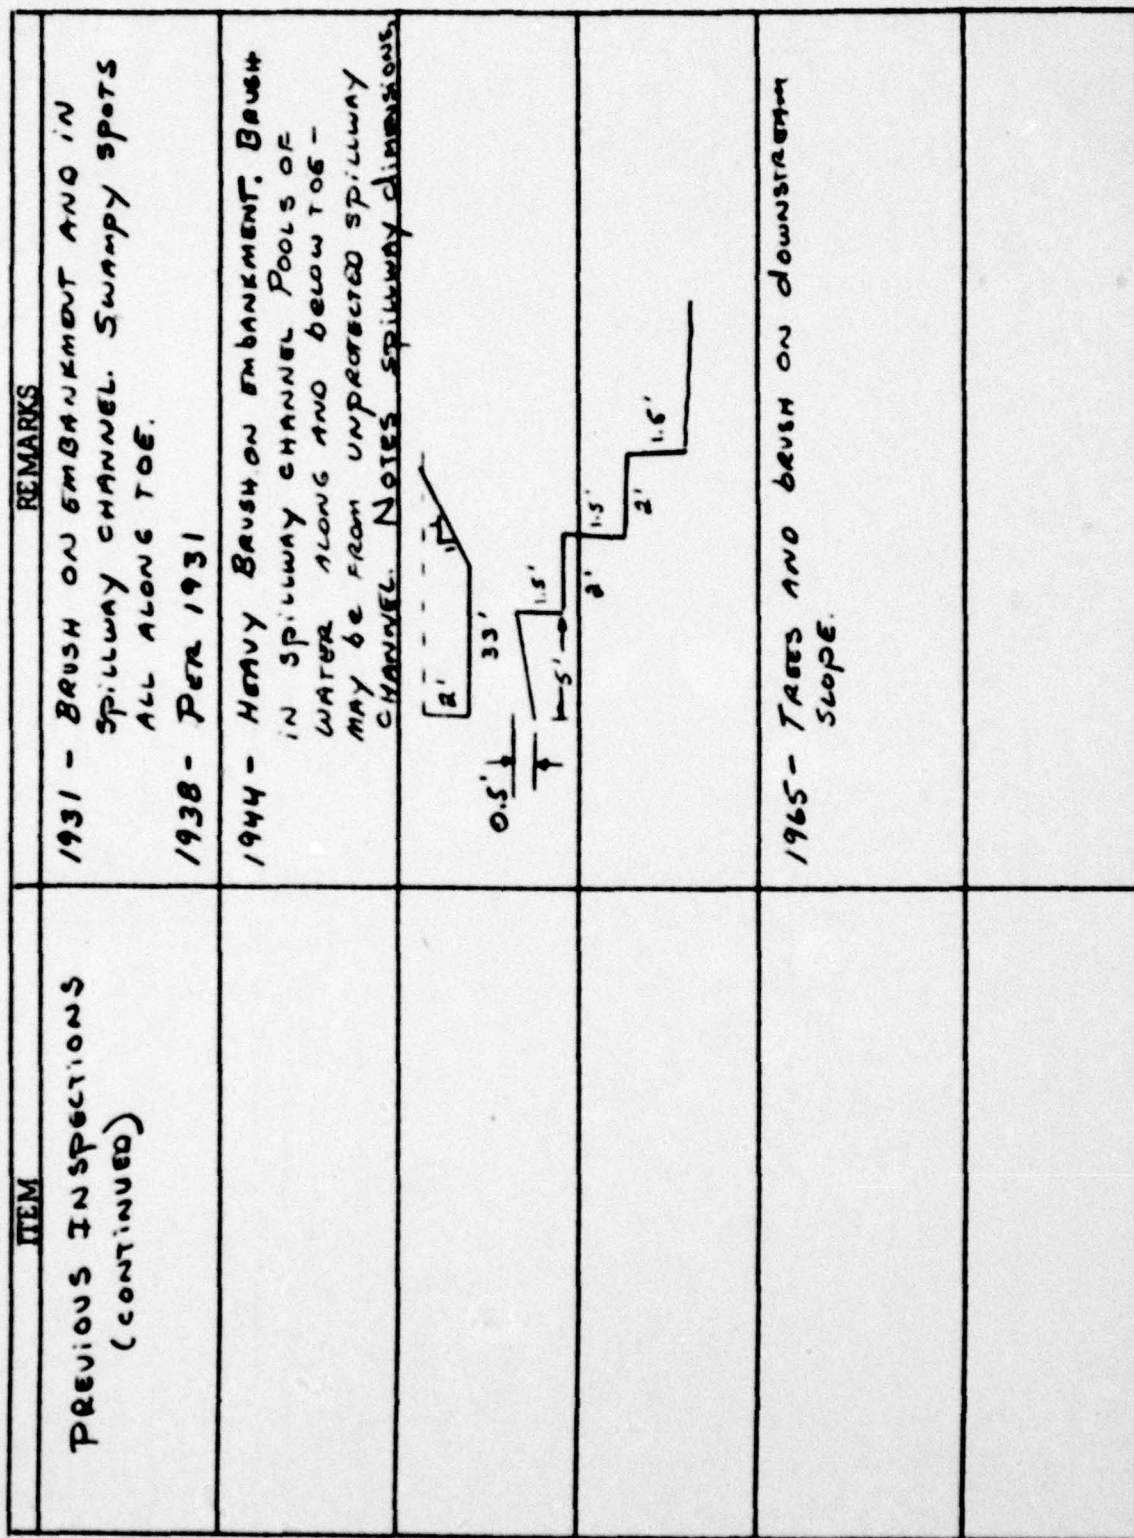 ITEM
REMARKS
PREVIOUS INSPECTIONS
(CONTINUED)
1931 - BRUSH ON EMBANKMENT AND IN
SPILLWAY CHANNEL. SWAMPY SPOTS
ALL ALONG TOE.
1938 - PER 1931
1944 - HEAVY BRUSH ON EMBANKMENT. BRUSH
IN SPILLWAY CHANNEL POOLS OF
WATER ALONG AND BELOW TOE -
MAY BE FROM UNPROTECTED SPILLWAY
CHANNEL. NOTES SPILLWAY DIMENSIONS.
2'
1
33'
0.5'
5'
1.5'
2'
1.5'
2'
1.5'
1965 - TREES AND BRUSH ON DOWNSTREAM
SLOPE.